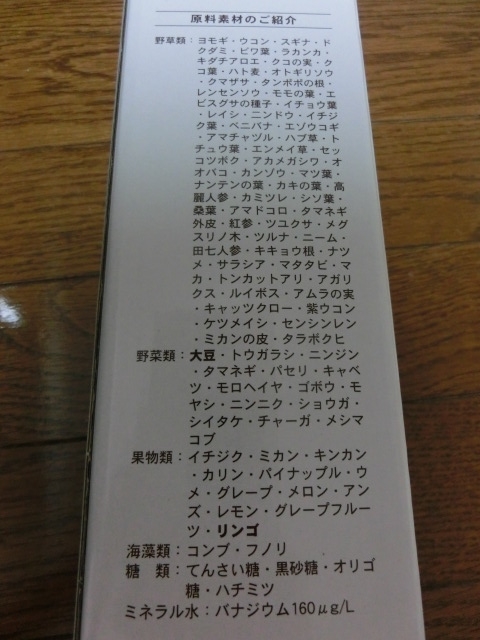 原料素材のご紹介
野草類：ヨモギ・ウコン・スギナ・ド
クダミ・ビワ葉・ラカンカ・
キダチアロエ・クコの実・ク
コ葉・ハト麦・オトギリソウ
・クマザサ・タンポポの根・
レンセンソウ・モモの葉・エ
ビスグサの種子・イチョウ葉
・レイシ・ニンドウ・イチジ
ク葉・ベニバナ・エゾウコギ
・アマチャヅル・ハブ草・ト
チュウ葉・エンメイ草・セッ
コツボク・アカメガシワ・オ
オバコ・カンゾウ・マツ葉・
ナンテンの葉・カキの葉・高
麗人参・カミツレ・シソ葉・
桑葉・アマドコロ・タマネギ
外皮・紅参・ツユクサ・メグ
スリノ木・ツルナ・ニーム・
田七人参・キキョウ根・ナツ
メ・サラシア・マタタビ・マ
カ・トンカットアリ・アガリ
クス・ルイボス・アムラの実
・キャッツクロー・紫ウコン
・ケツメイシ・センシンレン
・ミカンの皮・タラボクヒ
野菜類：大豆・トウガラシ・ニンジン
・タマネギ・パセリ・キャベ
ツ・モロヘイヤ・ゴボウ・モ
ヤシ・ニンニク・ショウガ・
シイタケ・チャーガ・メシマ
コブ
果物類：イチジク・ミカン・キンカン
・カリン・パイナップル・ウ
メ・グレープ・メロン・アン
ズ・レモン・グレープフルー
ツ・リンゴ
海藻類：コンブ・フノリ
糖　類：てんさい糖・黒砂糖・オリゴ
糖・ハチミツ
ミネラル水：バナジウム160μg/L